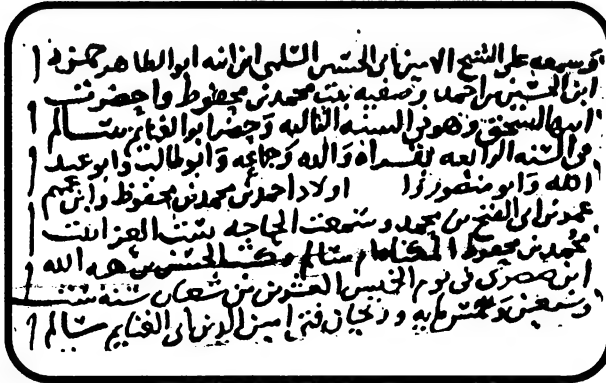 وسمعه على الشيخ الامين ابي الحسين السلمي ابن ابنه ابو الطاهر حمزه
ابن الحسين بن احمد وصفيه بنت محمد بن محفوظ واحضرت
ابنها اسحق وهو في السنه الثالثه وحضر ابو الغنايم سالم
في السنه الرابعه بقراه والده وجماعه وابو طالب وابو عبد
الله وابو منصور اولاد احمد بن محمد بن محفوظ وابن عمهم
عمر بن ابي الفتح بن محمد وسمعت الحاجه ست العز ابنت
محمد بن محفوظ ام سالم وكتب الحسن بن هبه الله
ابن صصرى في يوم الخميس العشرين من شعبان سنه ست
وسبعين وخمس مايه وريحان فتى امين الدين ابي الغنايم سالم